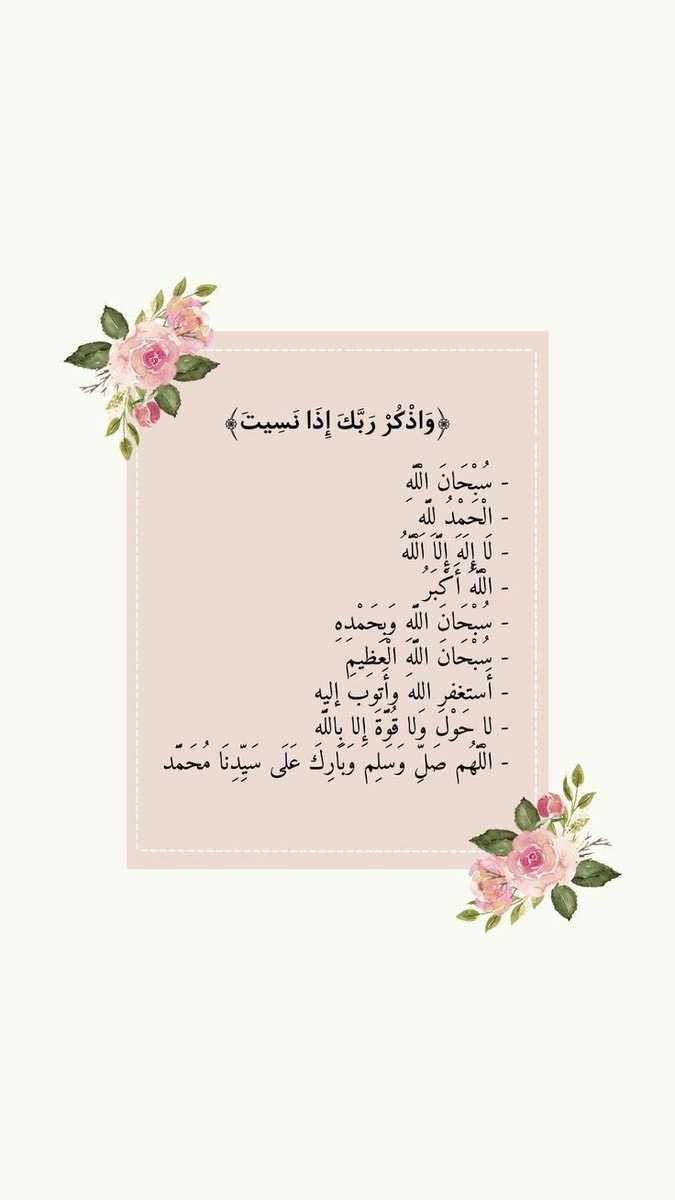 ﴿وَاذْكُرْ رَبَّكَ إِذَا نَسِيتَ﴾
- سُبْحَانَ اللَّهِ
- الْحَمْدُ لِلَّهِ
- لَا إِلَهَ إِلَّا اللَّهُ
- اللَّهُ أَكْبَرُ
- سُبْحَانَ اللَّهِ وَبِحَمْدِهِ
- سُبْحَانَ اللَّهِ الْعَظِيمِ
- أَستغفر الله وأَتوب إليه
- لا حَوْلَ وَلا قُوَّةَ إِلا بِاللَّهِ
- اللَّهُم صَلِّ وَسَلِم وَبَارِك عَلَى سَيِّدِنَا مُحَمَّد